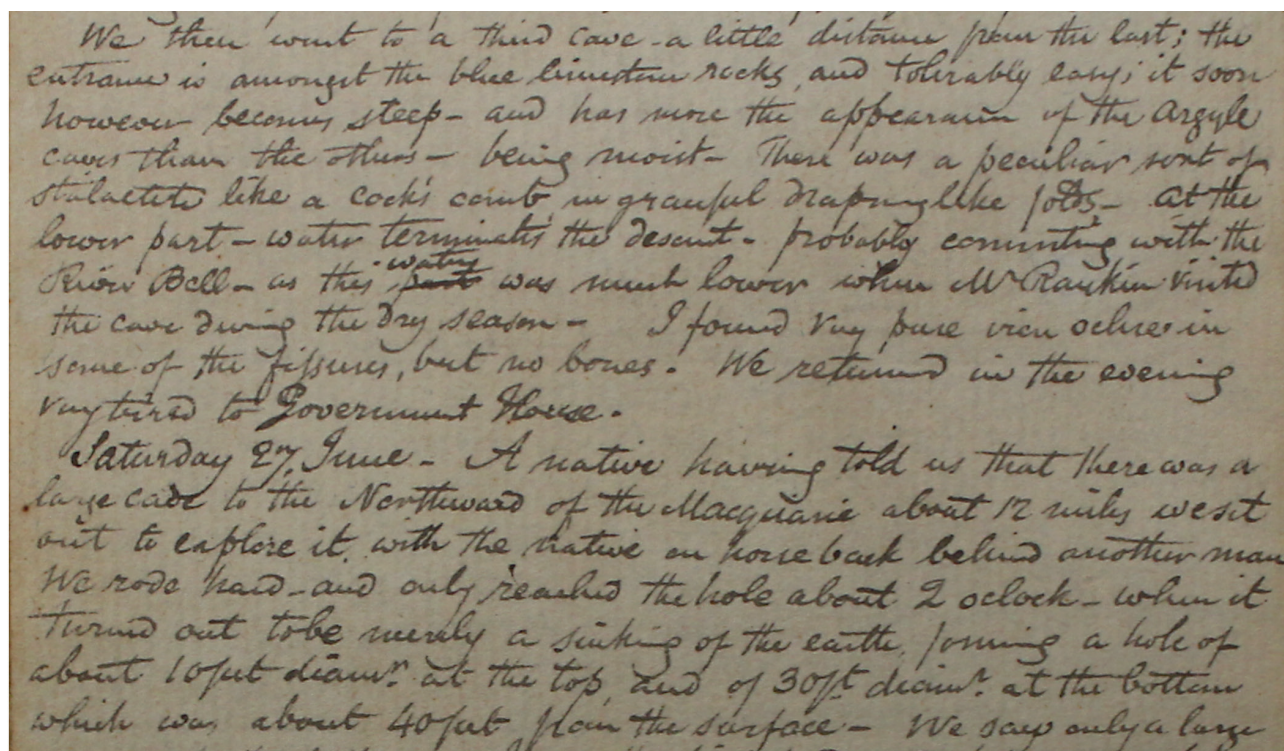 We then went to a third cave - a little distance from the last; the
entrance is amongst the blue limestone rocks, and tolerably easy; it soon
however becomes steep - and has more the appearance of the Argyle
caves than the others - being moist - There was a peculiar sort of
stalactite like a cock's comb in graceful drapery like folds - at the
lower part - water terminates the descent - probably connecting with the
River Bell - as this water was much lower when Mr Rankin visited
the cave during the dry season - I found very pure ochre in
some of the fissures, but no bones. We returned in the evening
very tired to Government House.
Saturday 27, June - A native having told us that there was a
large cave to the Northward of the Macquarie about 12 miles we set
out to explore it, with the native on horseback behind another man
We rode hard - and only reached the hole about 2 oclock - when it
turned out to be merely a sinking of the earth, forming a hole of
about 10 feet diamr. at the top, and of 30 ft diamr. at the bottom
which was about 40 feet from the surface - We saw only a large